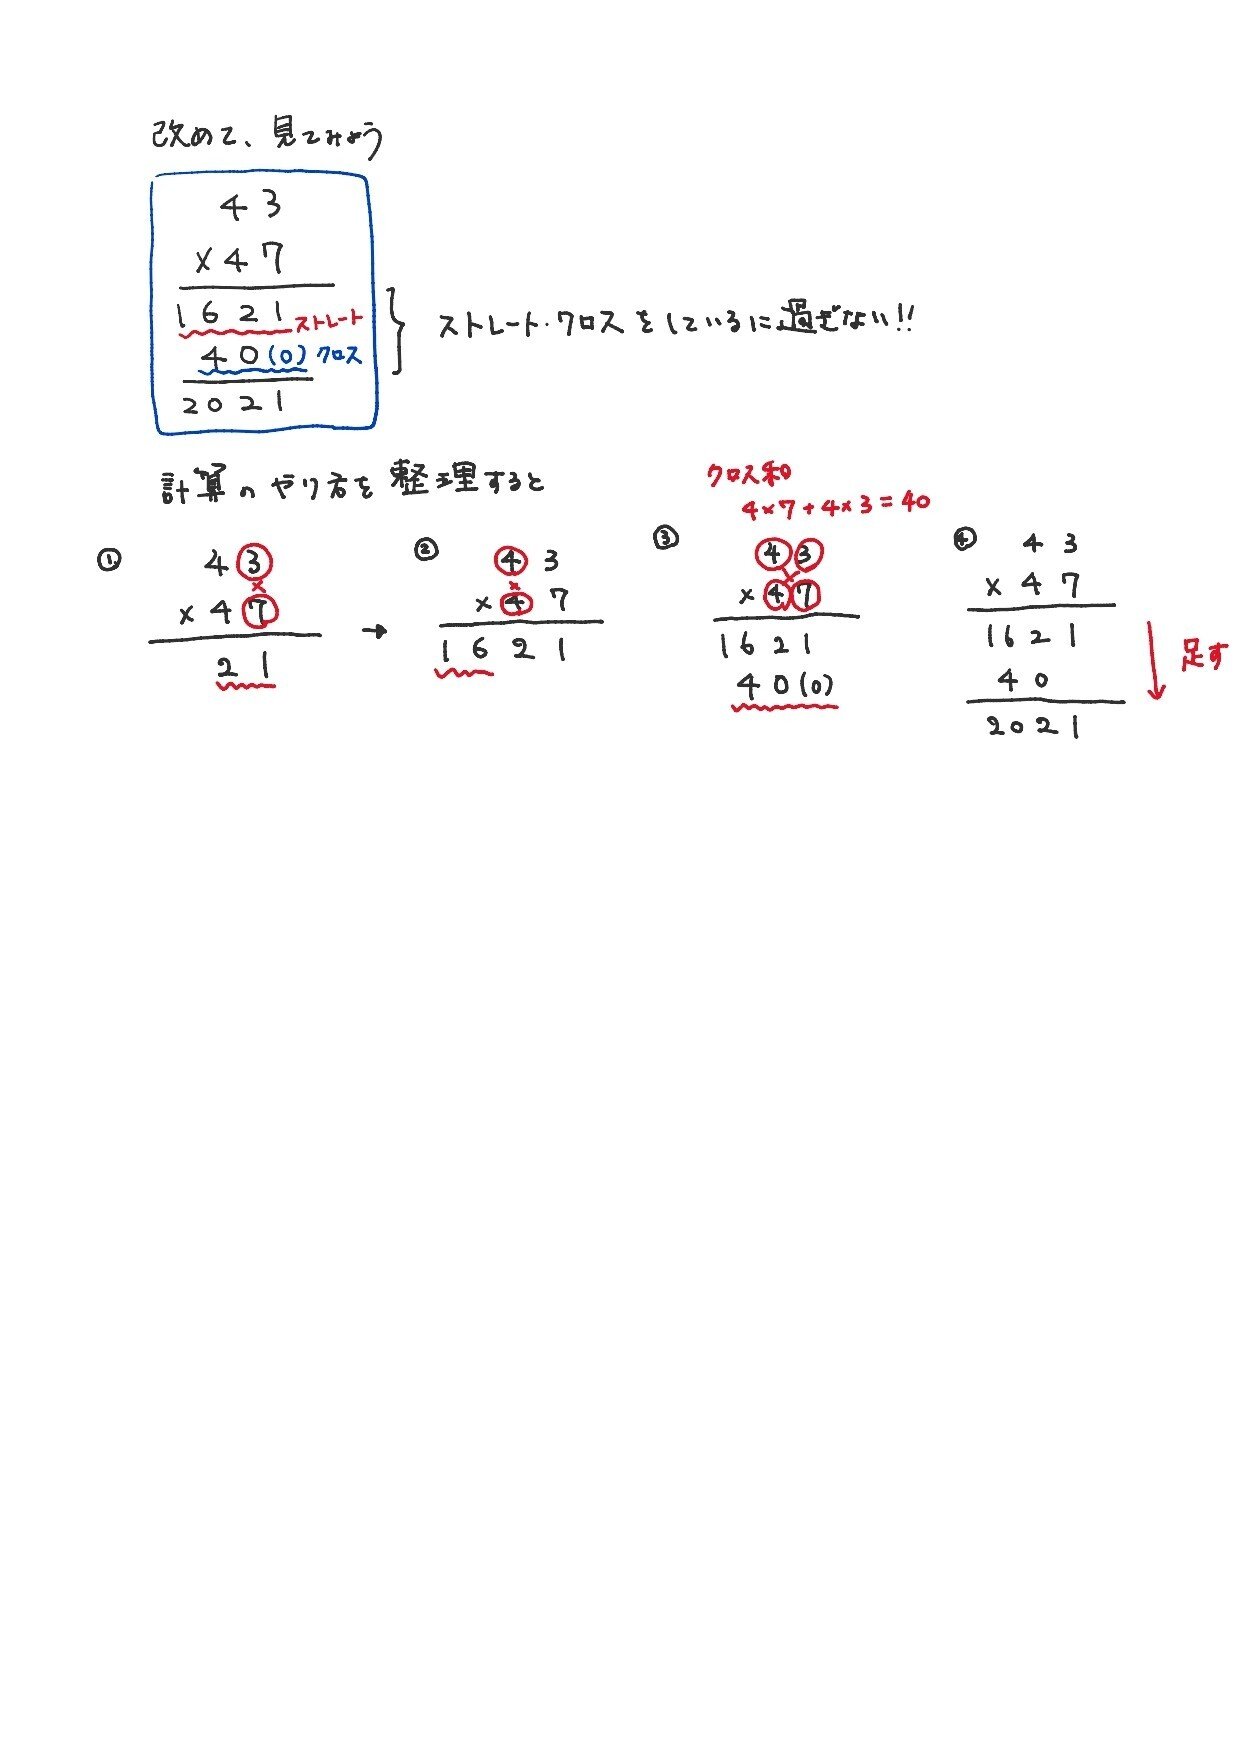 改めて、見てみよう
43
×47
1621 ストレート
40(0) クロス
2021
ストレート・クロスをしているに過ぎない!!
計算のやり方を整理すると
クロス和
4×7+4×3=40
①
43
×
×47
21
→
②
43
×
×47
1621
③
43
×47
1621
40(0)
④
43
×47
1621
40
2021
足す